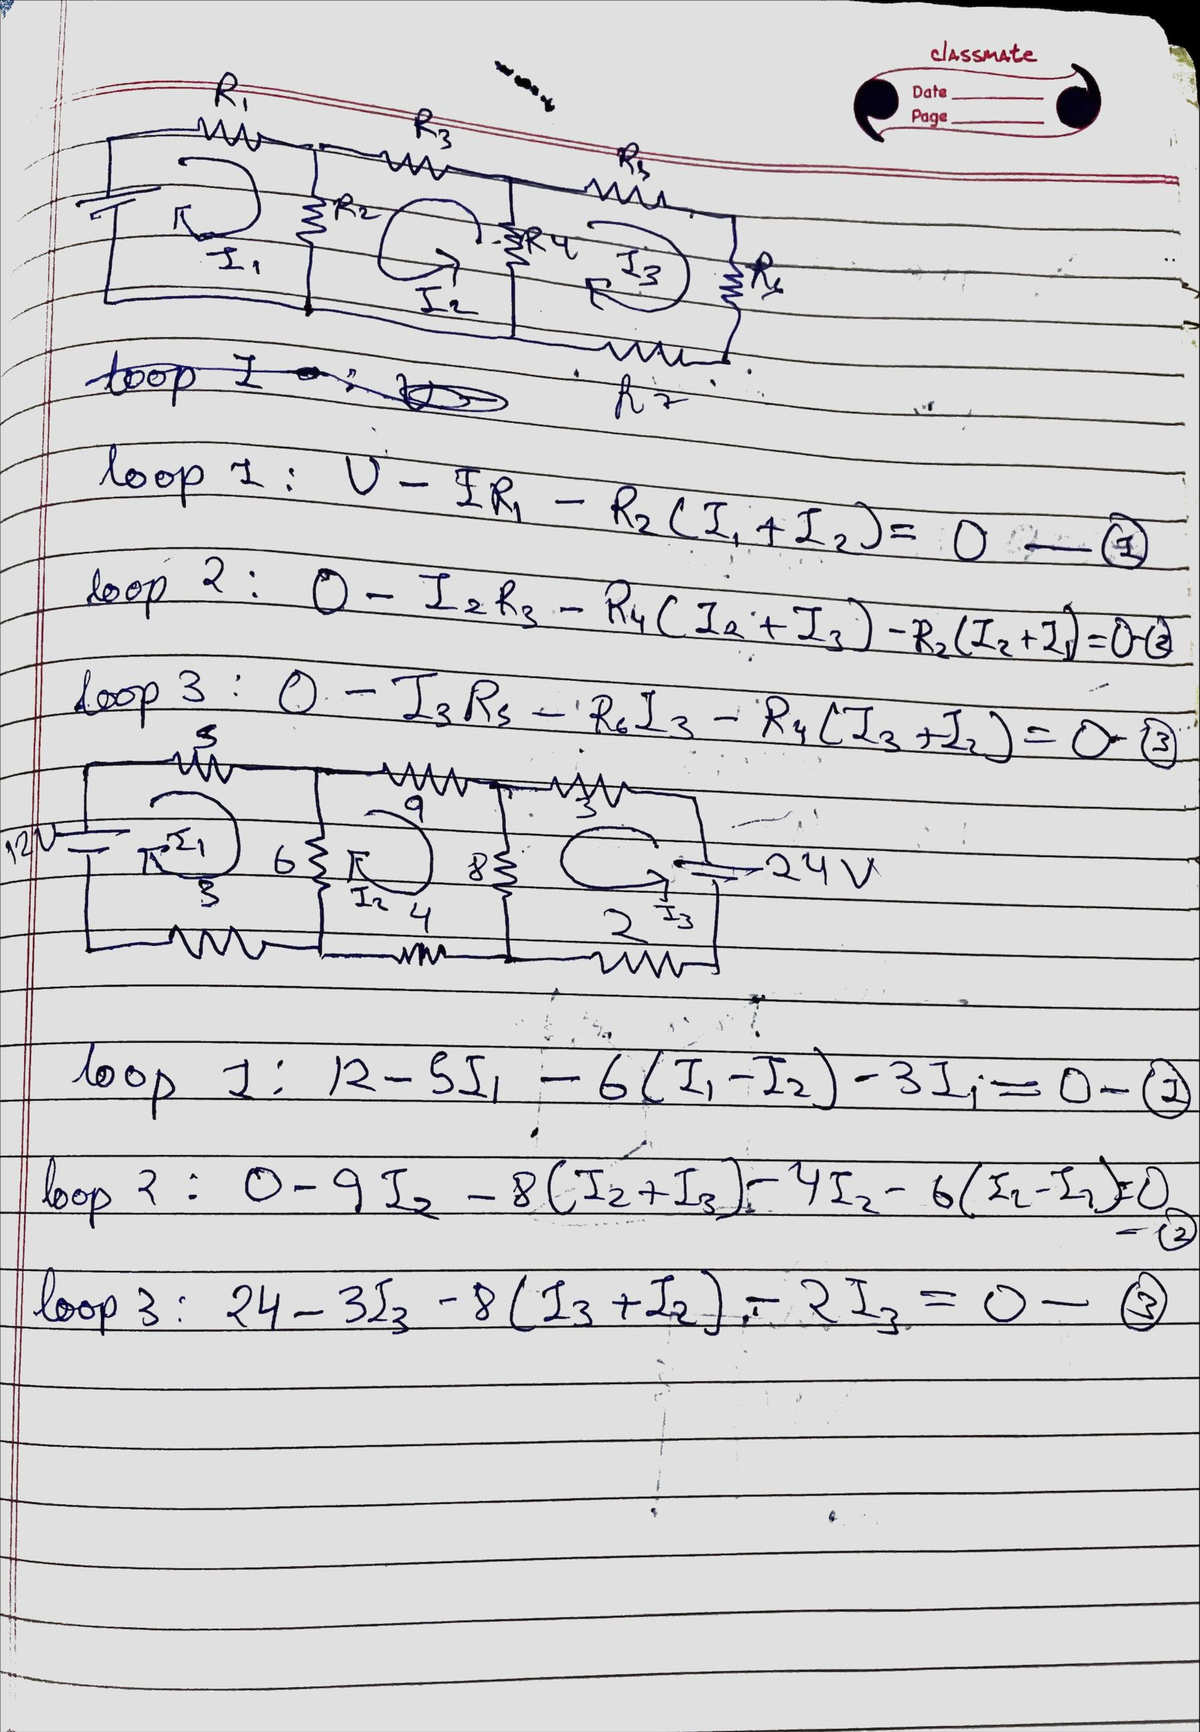 classmate
Date
Page
R₁
R₃
R₅
R₂
R₄
R₆
I₁
I₂
I₃
R₇
loop 1: V - IR₁ - R₂(I₁+I₂) = 0 — ①
loop 2: 0 - I₂R₃ - R₄(I₂+I₃) - R₂(I₂+I₁) = 0 - ②
loop 3: 0 - I₃R₅ - R₆I₃ - R₄(I₃+I₂) = 0 - ③
5
9
3
12V
I₁
6
I₂
8
I₃
24V
3
4
2
loop 1: 12 - 5I₁ - 6(I₁-I₂) - 3I₁ = 0 - ①
loop 2: 0 - 9I₂ - 8(I₂+I₃) - 4I₂ - 6(I₂-I₁) = 0
- ②
loop 3: 24 - 3I₃ - 8(I₃+I₂) - 2I₃ = 0 — ③